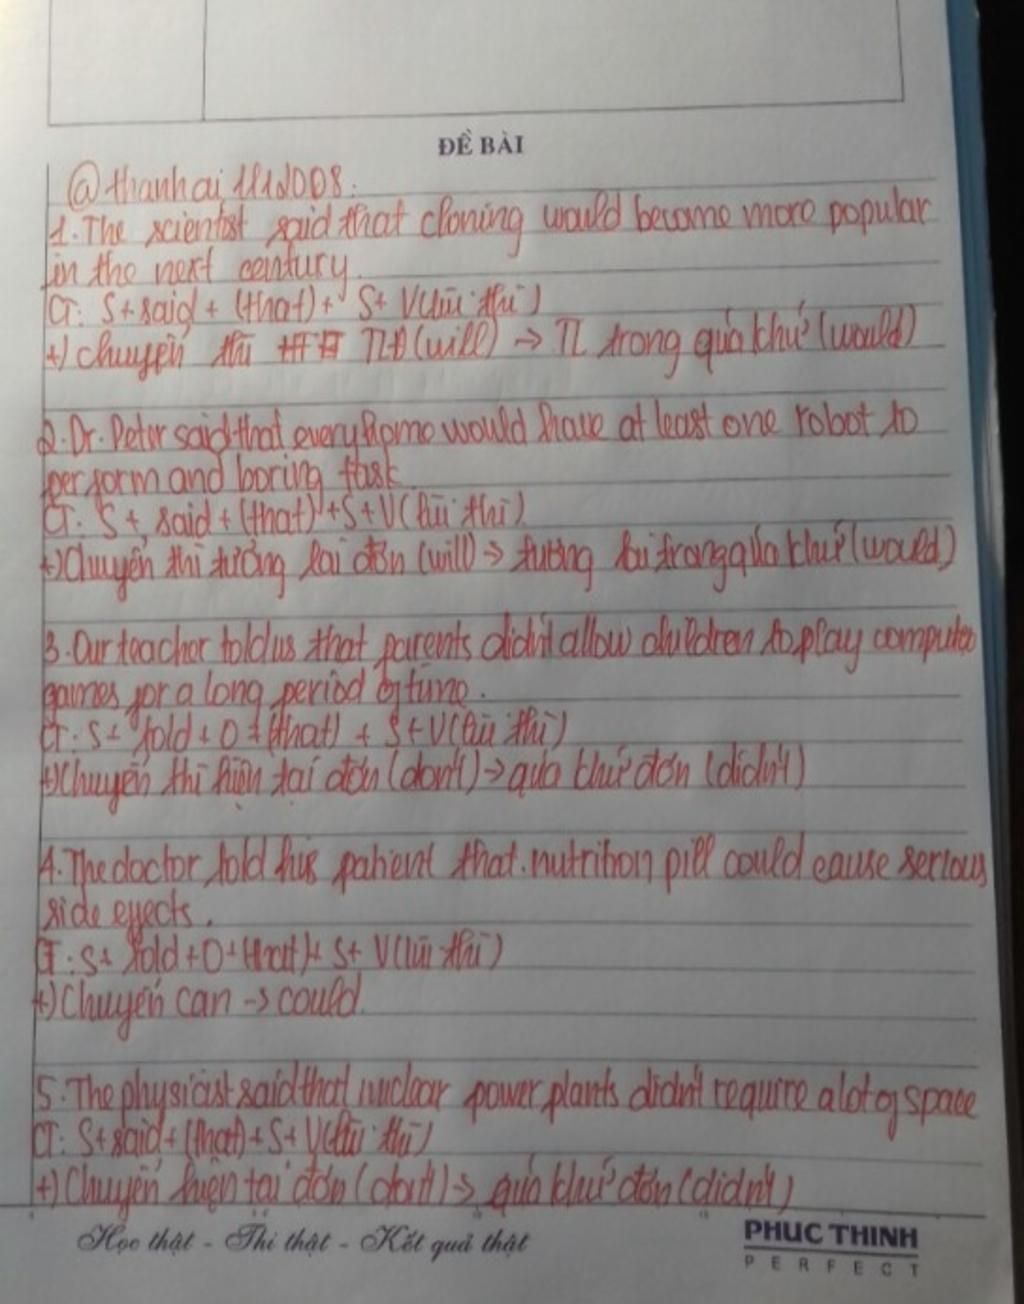 ĐỀ BÀI
@thanhai1112008.
1. The scientist said that cloning would become more popular
in the next century.
CT: S + said + (that) + S + V(lùi thì)
+) Chuyển thì TLĐ (will) → TL trong quá khứ (would)
2. Dr. Peter said that every home would have at least one robot to
perform and boring task.
CT: S + said + (that) + S + V(lùi thì)
+) Chuyển thì tương lai đơn (will) → tương lai trong quá khứ (would)
3. Our teacher told us that parents didn't allow children to play computer
games for a long period of time.
CT: S + told + O + (that) + S + V(lùi thì)
+) Chuyển thì hiện tại đơn (don't) → quá khứ đơn (didn't)
4. The doctor told his patient that nutrition pill could cause serious
side effects.
CT: S + told + O + (that) + S + V(lùi thì)
+) Chuyển can → could.
5. The physicist said that nuclear power plants didn't require a lot of space
CT: S + said + (that) + S + V(lùi thì)
+) Chuyển hiện tại đơn (don't) → quá khứ đơn (didn't)
Học thật - Thi thật - Kết quả thật
PHUC THINH
PERFECT